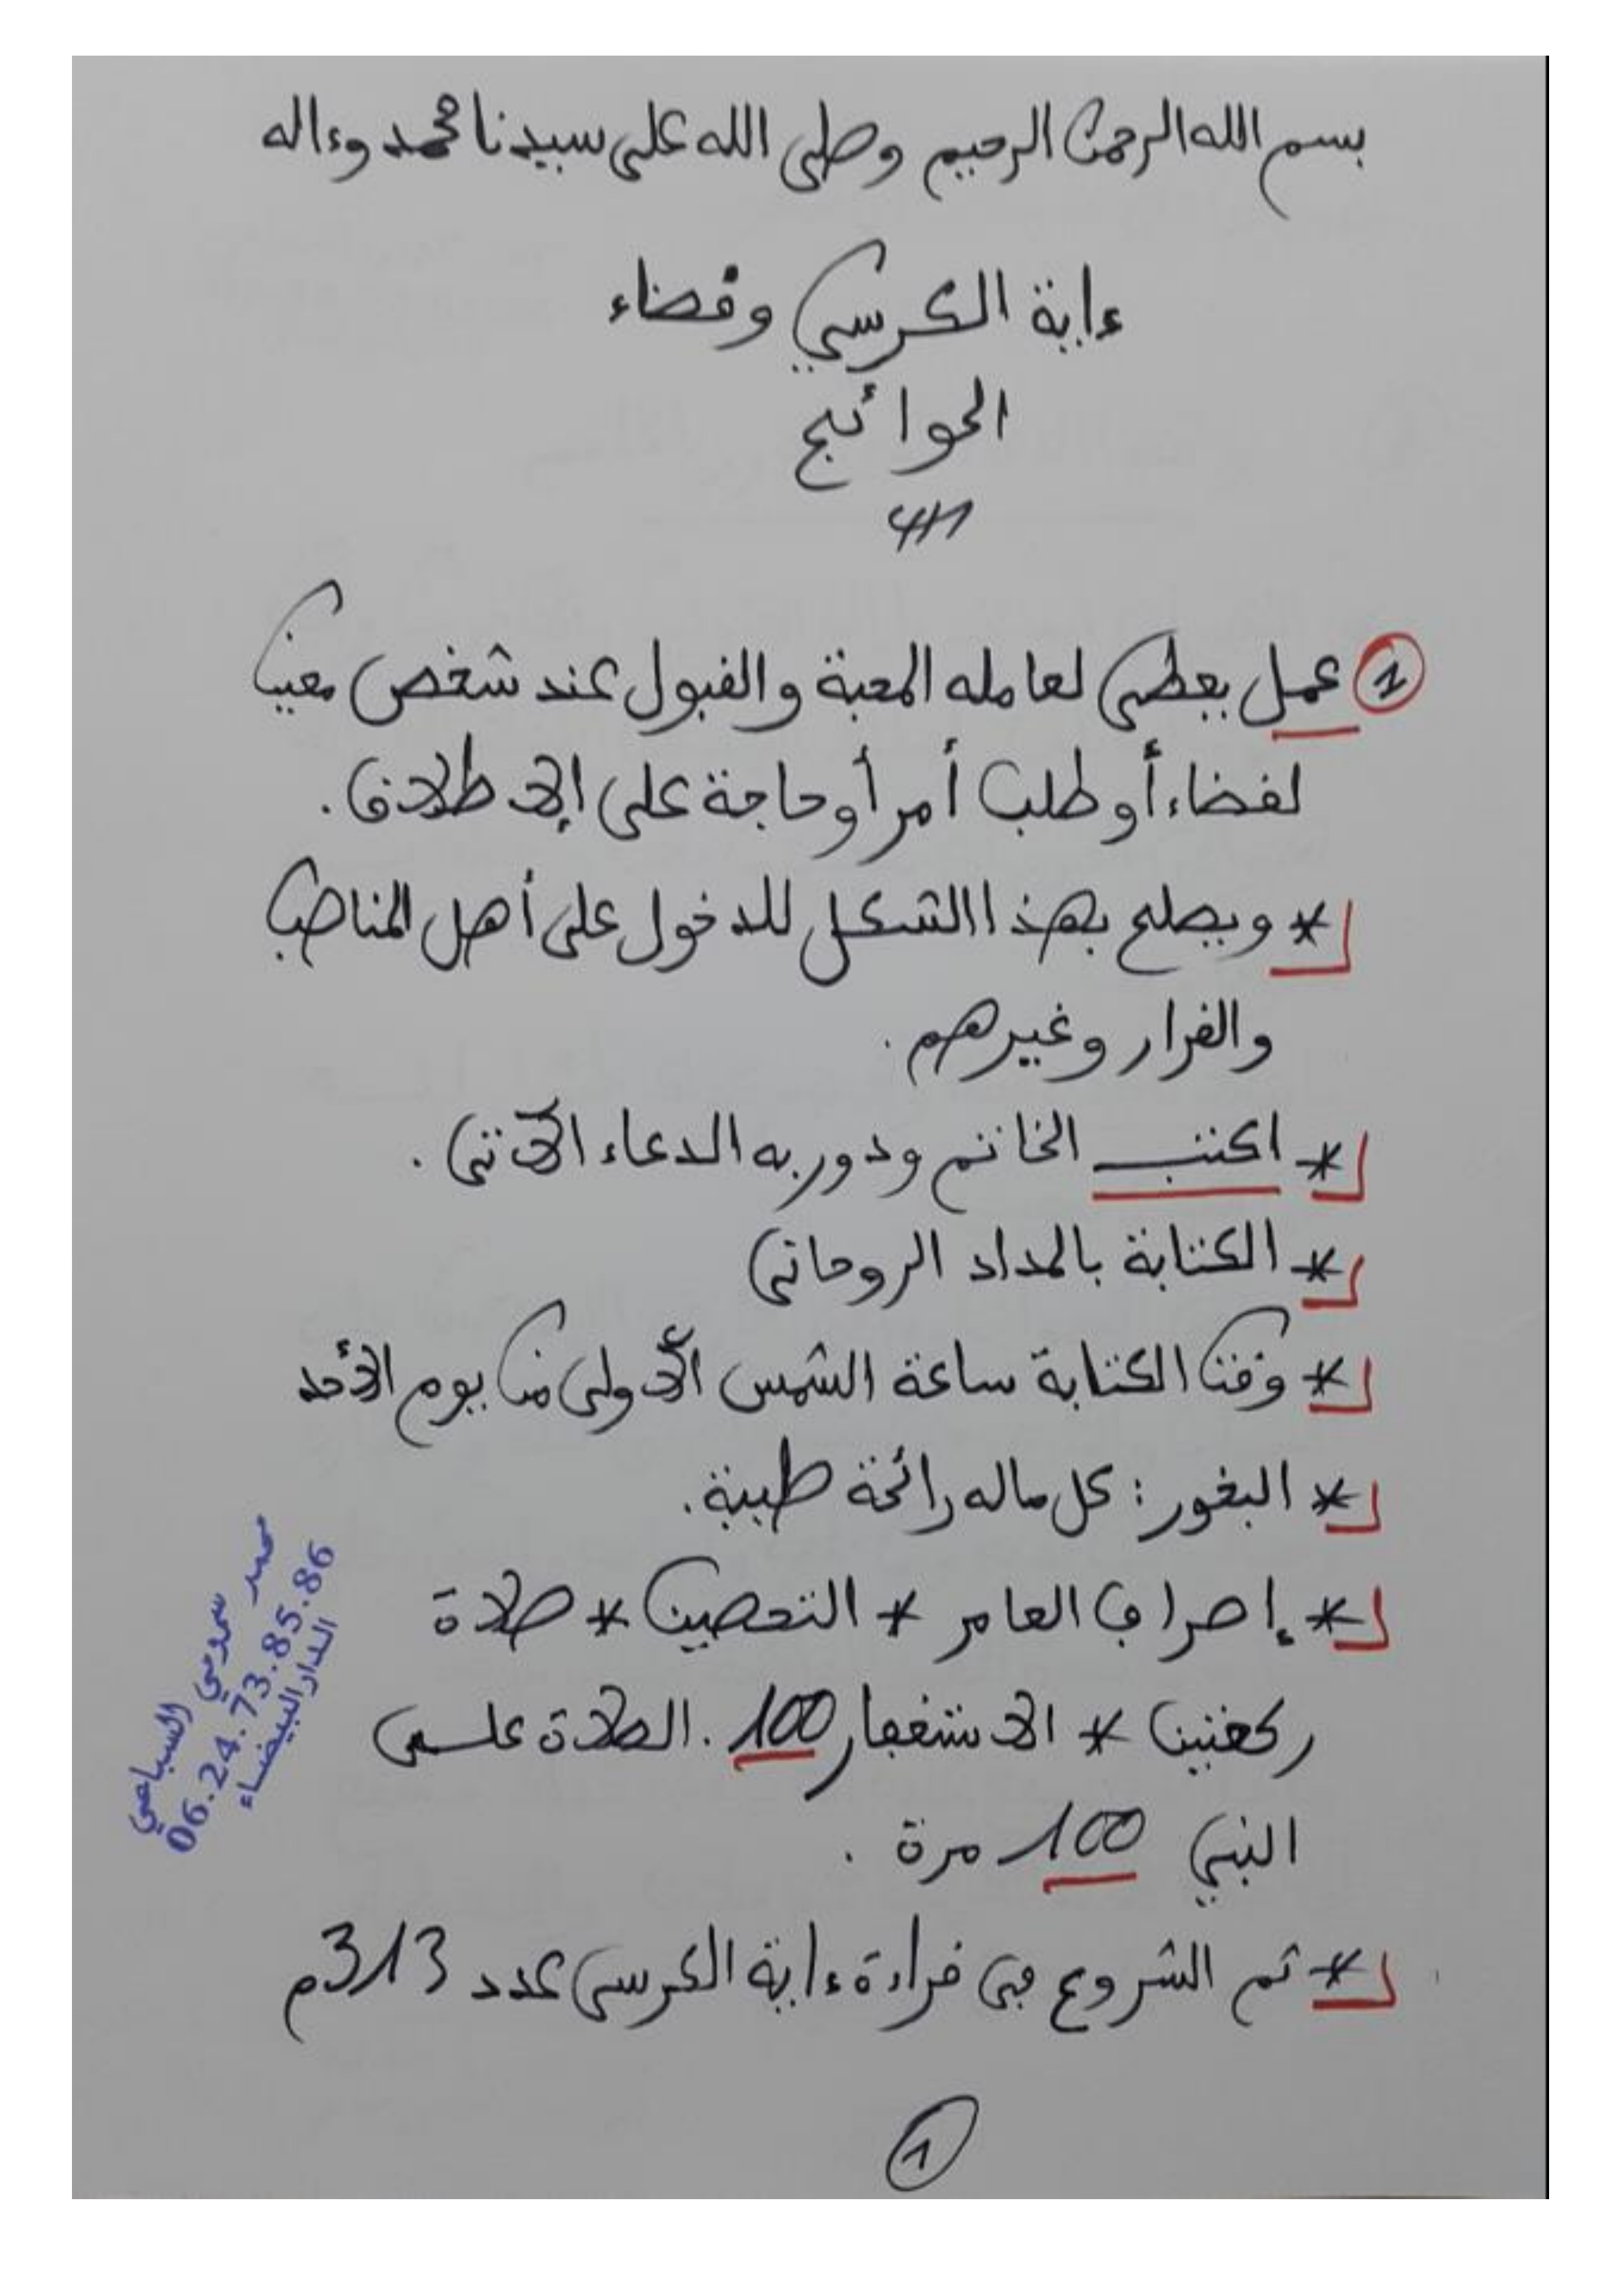 بسم الله الرحمن الرحيم وصلى الله على سيدنا محمد وءاله
ءاية الكرسي وقضاء
الحوائج
1 عمل يعطي لعامله المحبة والقبول عند شخص معين
لقضاء أو طلب أمر أو حاجة على الإطلاق.
* ويصلح بهذا الشكل للدخول على أهل المناصب
والقرار وغيرهم.
* اكتب الخاتم ودور به الدعاء الآتي.
* الكتابة بالمداد الروحاني
* وقت الكتابة ساعة الشمس الأولى من يوم الأحد
* البخور: كل ماله رائحة طيبة.
* إصراف العامر * التحصين * صلاة
ركعتين * الاستغفار 100. الصلاة على
النبي 100 مرة.
* ثم الشروع في قراءة ءاية الكرسي عدد 313م
1
محمد السباعي
06.24.73.85.86
الدار البيضاء